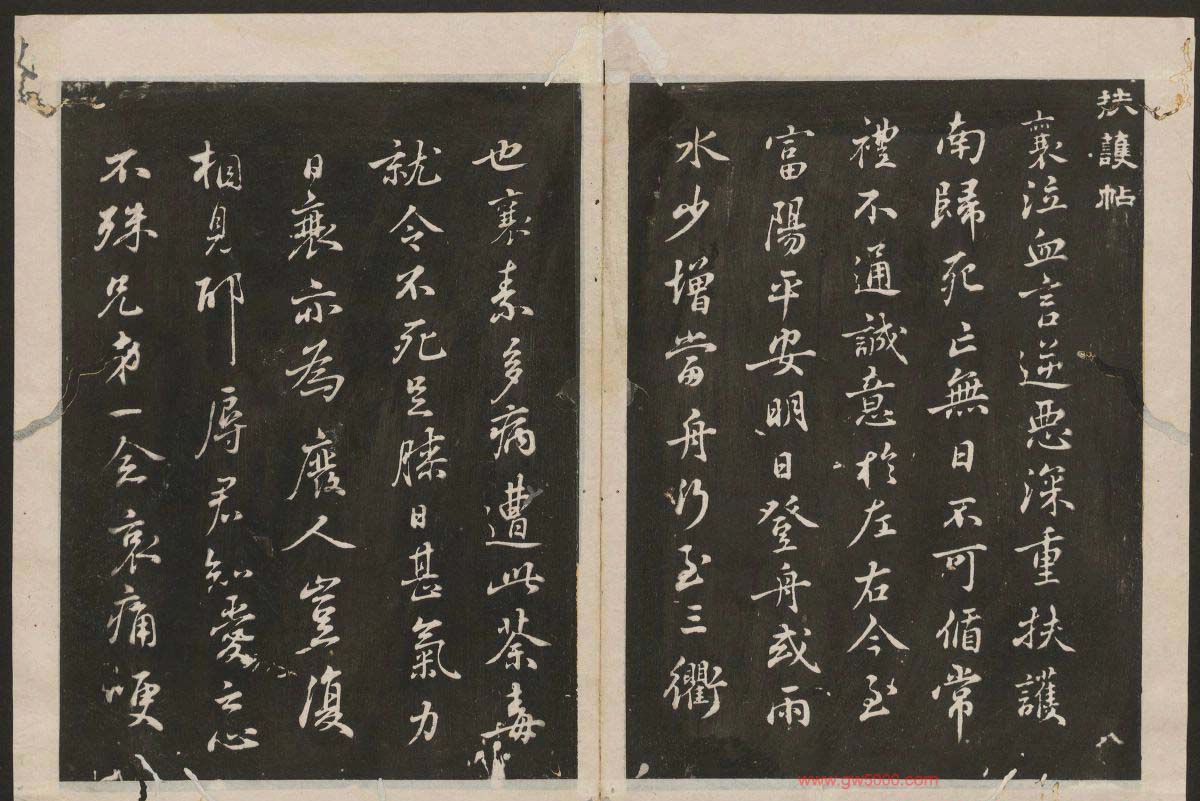 扶護帖
襄泣血言逆惡深重扶護
南歸死亡無日不可循常
禮不通誠意於左右今至
富陽平安明日登舟或雨
水少增當舟行至三衢
也襄素多病遭此荼毒
就令不死足膝日甚氣力
日衰襄亦為廢人豈復
相見耶辱君知愛之心
不殊兄弟一念哀痛哽
www.gw5000.com